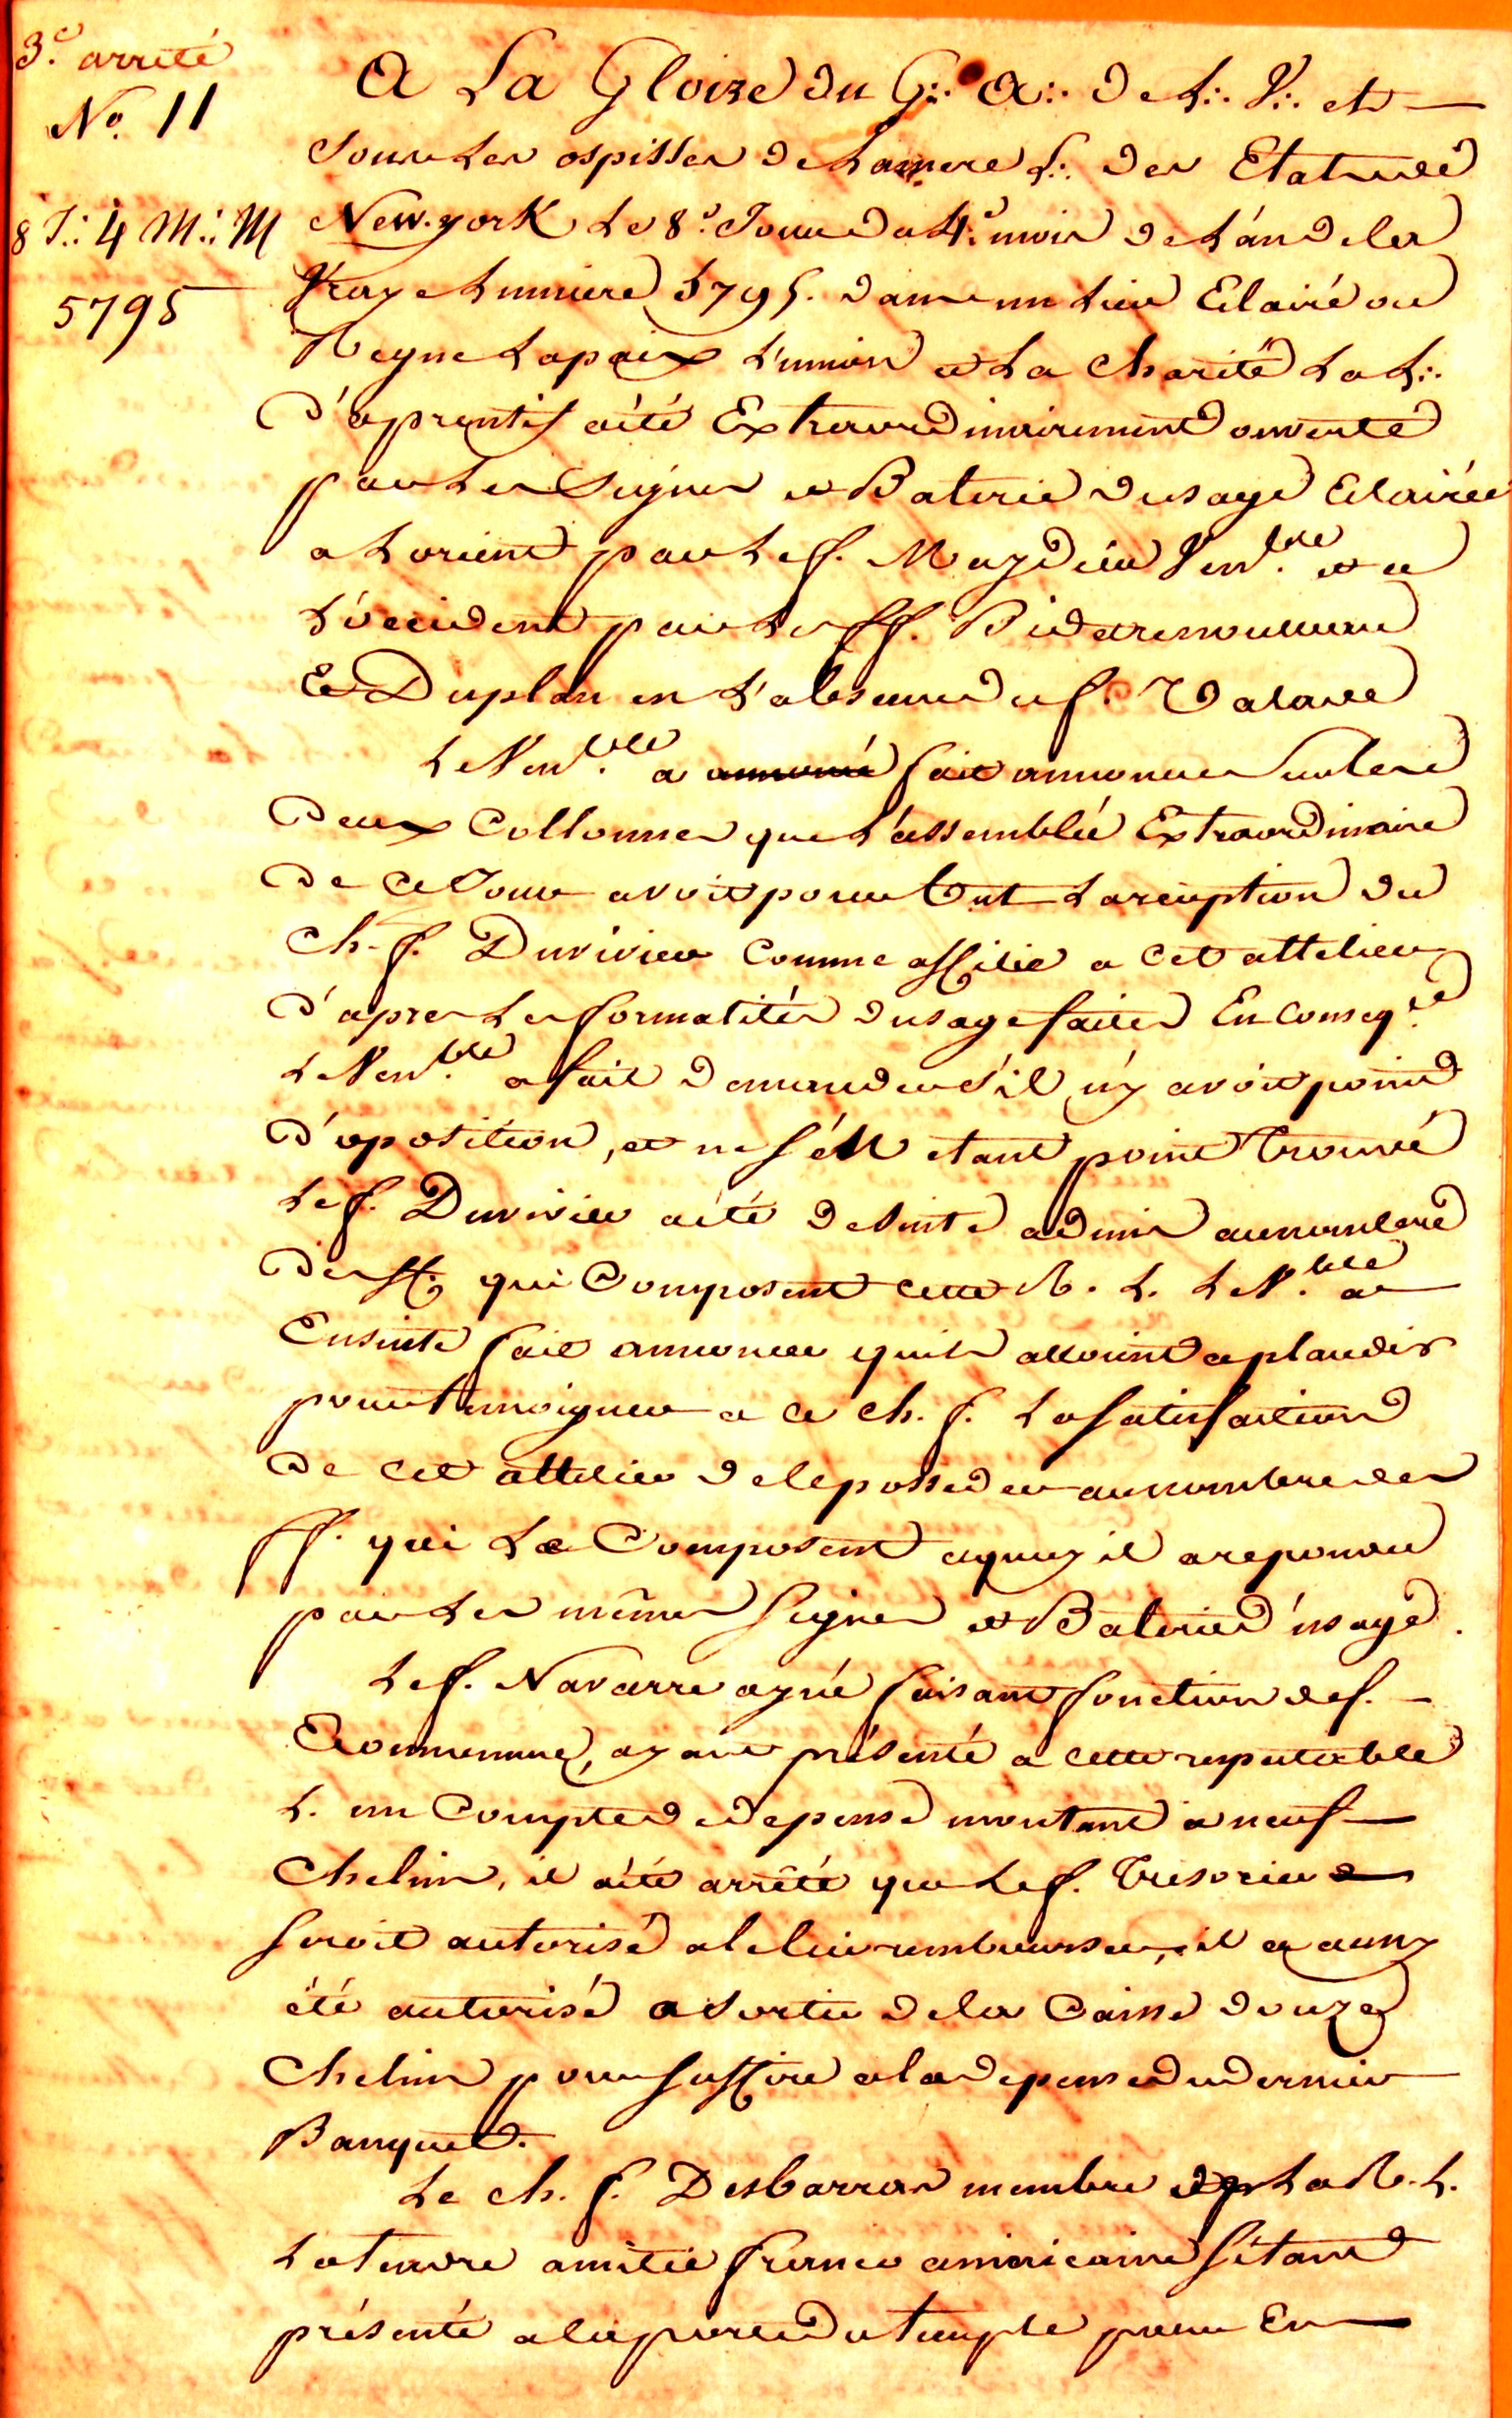 3e. arreté
No. 11
8 J∴ 4 M∴ M
5795
A La Gloire du G∴ A∴ de L∴ V∴ et
Sous Les ospisses de La mere L∴ des Etats de
New-york Le 8e. Jour du 4e. mois de L'an de la
Vraye Lumiere 5795. dans un Lieu Eclairé ou
Regne La paix L'union et La Charité La L∴
D'aprentif a été Extraordinairement ouverte
par Les Signes et Baterie dusage Eclairée
a Lorient par Le f. Mazdieu Ven.ble et a
L'occident par Les ff. Bideremoucum
Et Duplan en L'absence du f. Valade
Le Ven.ble a annoncé fait annoncer Sur Les
Deux Collonnes que L'assemblée Extraordinaire
De Ce Jour avoit pour But La reception du
Ch. f. Duvivier Comme affilié a Cet attelier
D'apres Les formalités dusage faites En Conseq.ce
Le Ven.ble a fait demander s'il n'y avoit point
D'oposition, et ne s'én etant point trouvé
Le f. Duvivier a été de Suite admis au nombre
Des ff. qui Composent cette R. L. Le V.ble a
Ensuite fait annoncer quils alloient aplaudir
pour temoigner a Ce Ch. f. La Satisfaction
De Cet attelier de le posseder au nombre des
ff. qui Le Composent aquoy il a repondu
par Les mêmes Signes et Baterie d'usage.
Le f. Navarre ayné faisant fonction de f.
Econnomme, ayant présenté a cette respectable
L. un Compte de depense montant a neuf
Chelins, il a été arrêté que Le f. Tresorier
Seroit autorisé a le lui rembourser, il a aussy
été autorisé a Sortir de la Caisse douze
Chelins pour Suffire a la depense du dernier
Banquet.
Le Ch. f. Desbarras membre de La R. L.
La tendre amitié franco americaine S'étant
présenté a la porte du temple pour En